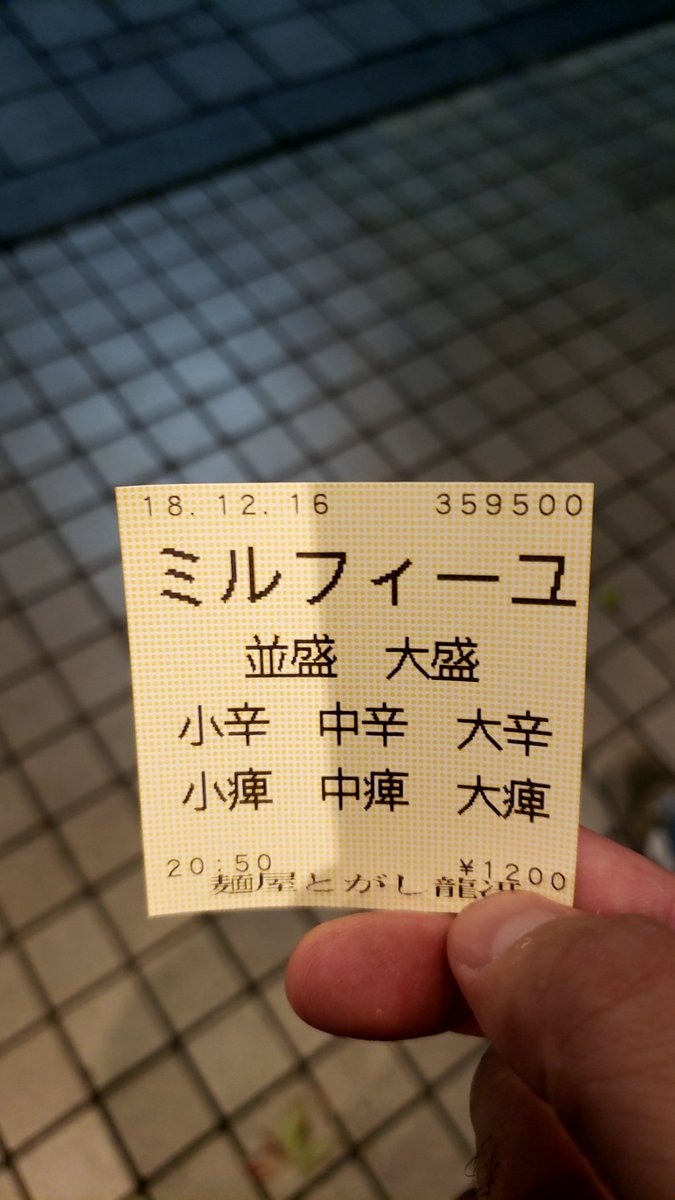 18.12.16 359500
ミルフィーユ
並盛 大盛
小辛 中辛 大辛
小痺 中痺 大痺
20:50 ¥1200
麺屋とがし龍